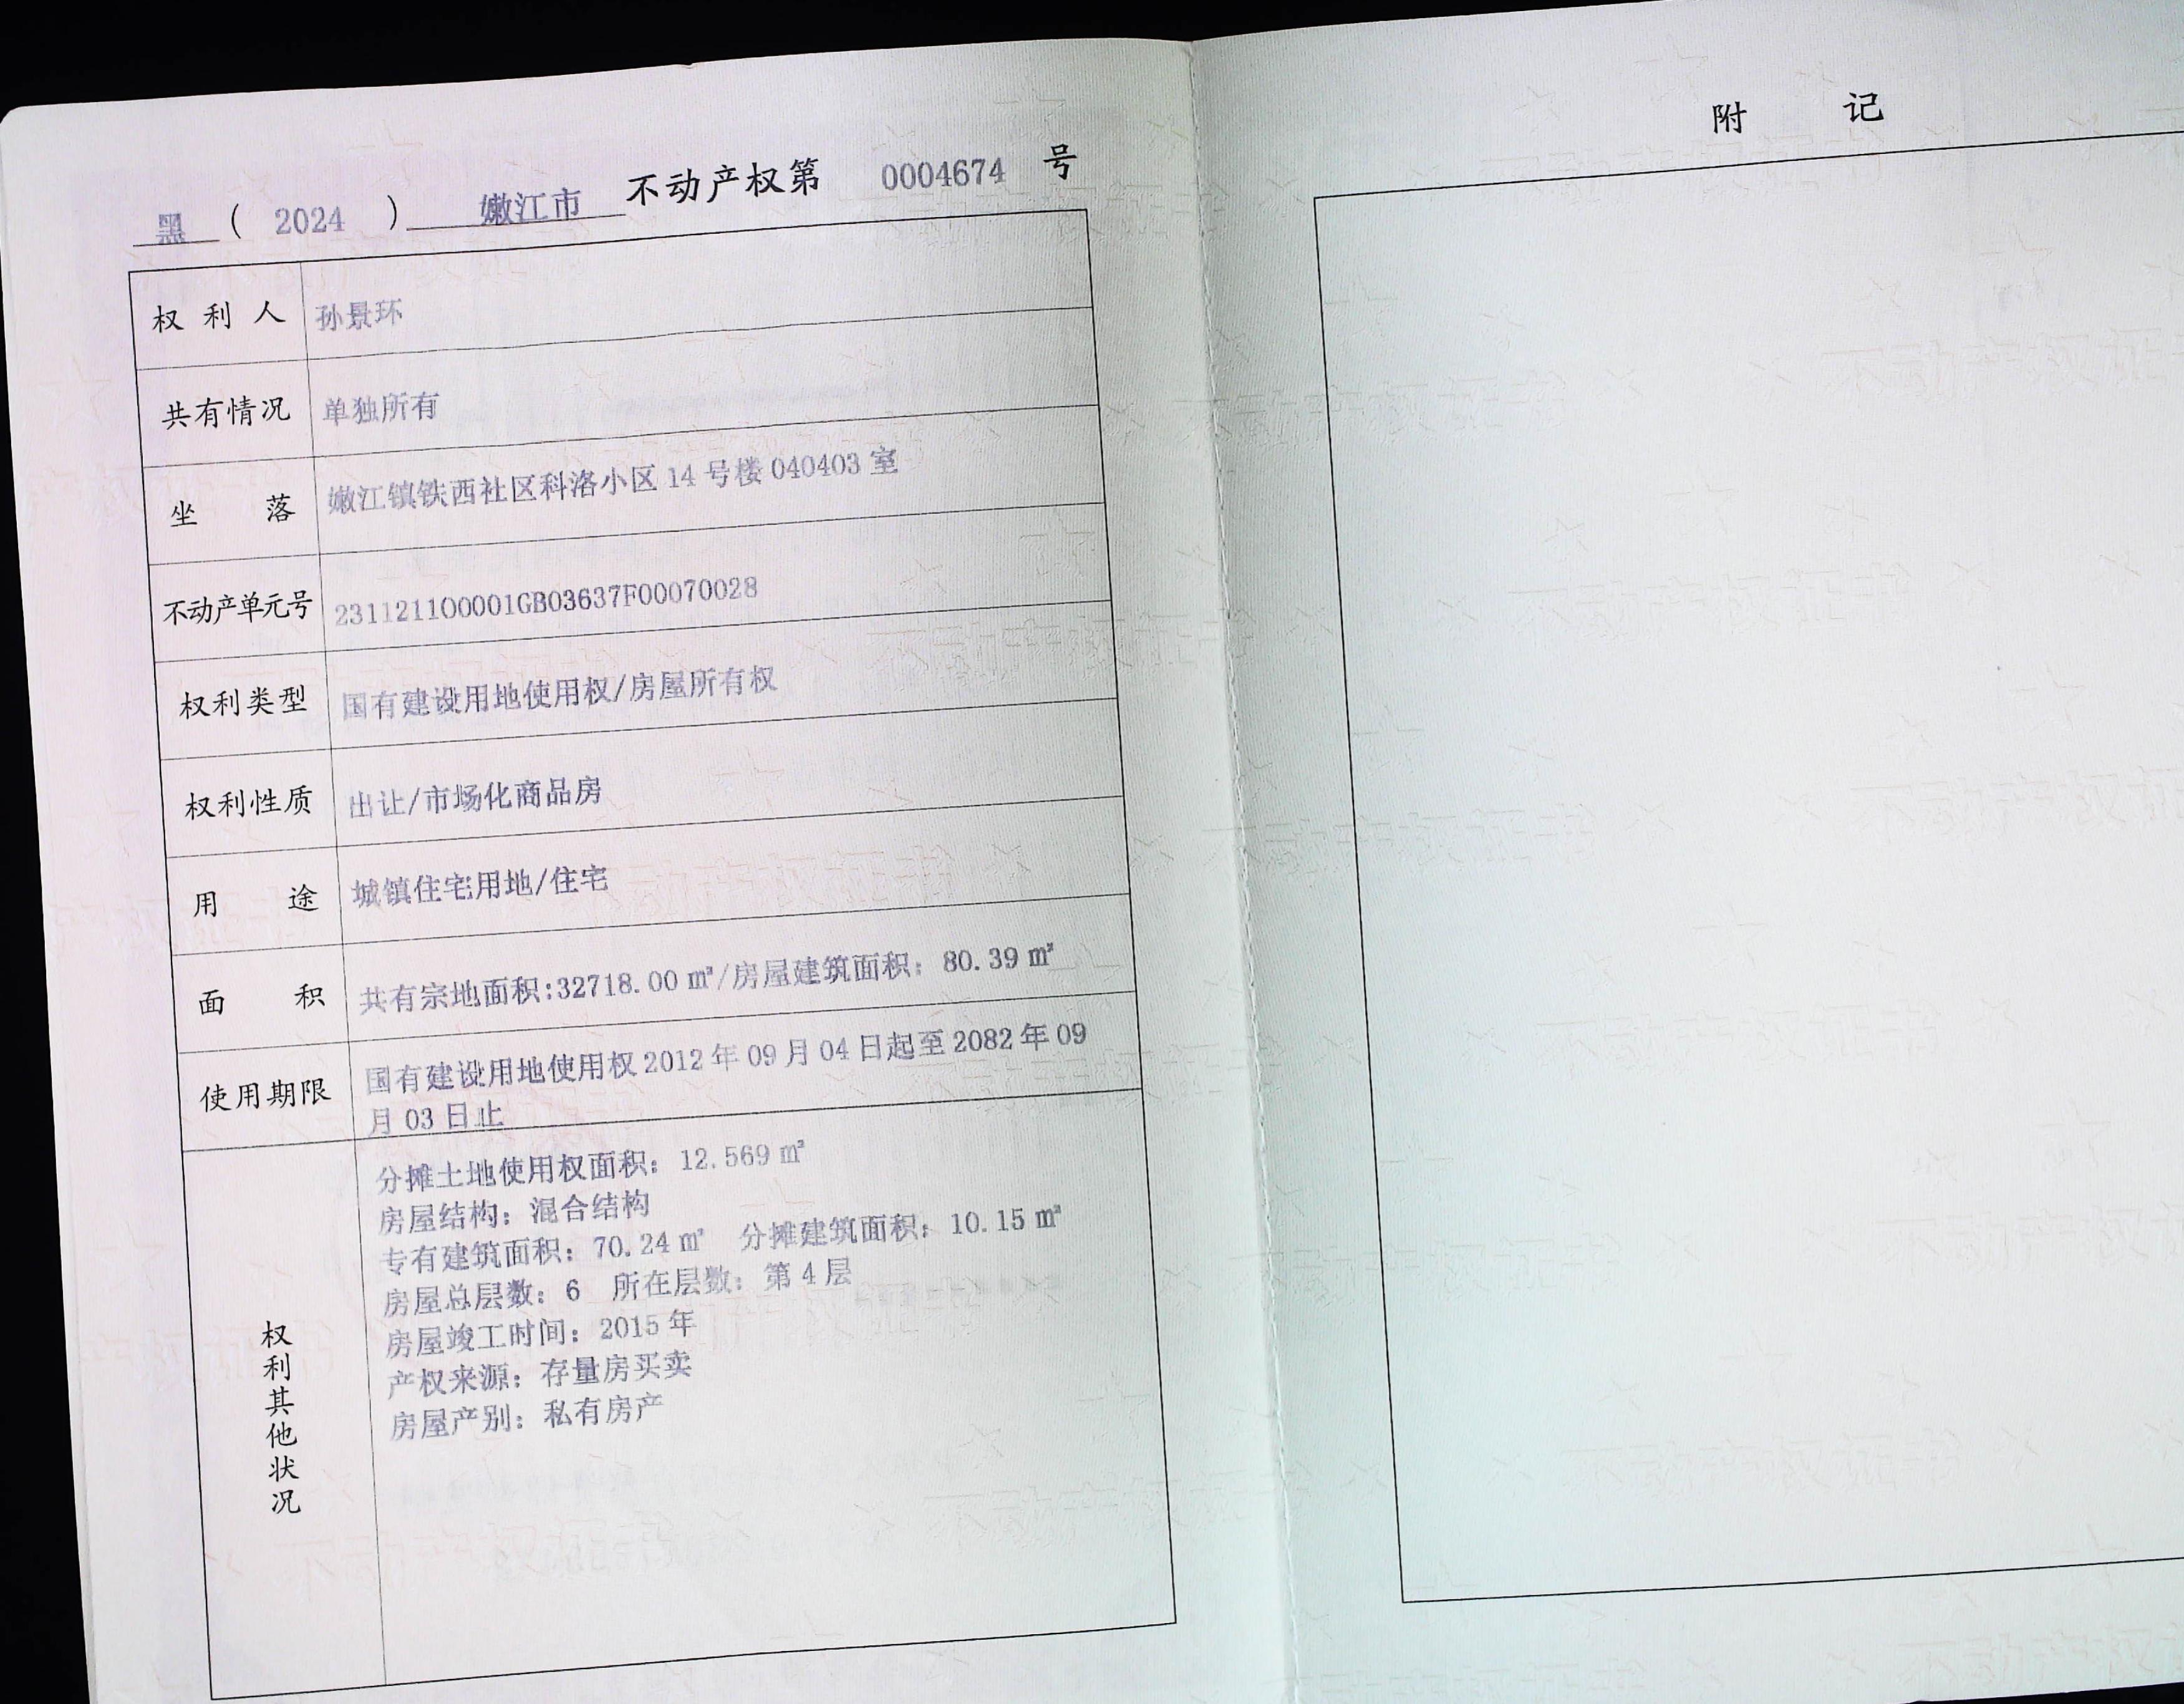 黑 ( 2024 ) 嫩江市 不动产权第 0004674 号
权利人 孙景环
共有情况 单独所有
坐落 嫩江镇铁西社区科洛小区 14 号楼 040403 室
不动产单元号 231121100001GB03637F00070028
权利类型 国有建设用地使用权/房屋所有权
权利性质 出让/市场化商品房
用途 城镇住宅用地/住宅
面积 共有宗地面积:32718.00 ㎡/房屋建筑面积: 80.39 ㎡
使用期限 国有建设用地使用权 2012 年 09 月 04 日起至 2082 年 09
月 03 日止
权利其他状况
分摊土地使用权面积: 12.569 ㎡
房屋结构: 混合结构
专有建筑面积: 70.24 ㎡ 分摊建筑面积: 10.15 ㎡
房屋总层数: 6 所在层数: 第 4 层
房屋竣工时间: 2015 年
产权来源: 存量房买卖
房屋产别: 私有房产
附记